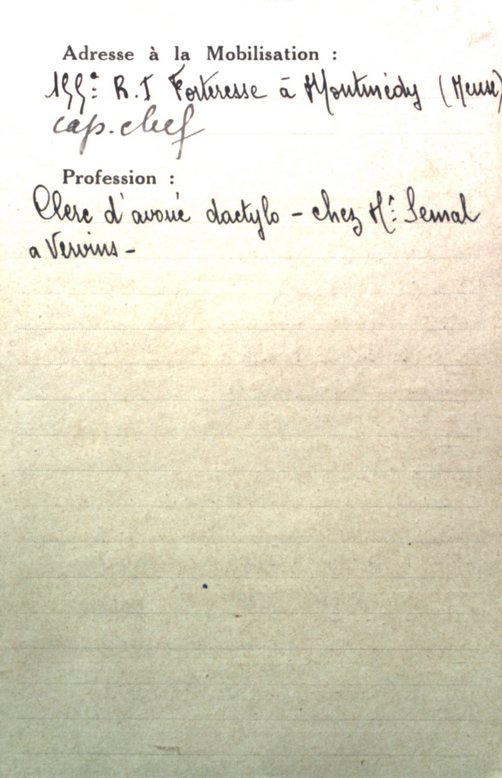 Adresse à la Mobilisation :
155e R.I Forteresse à Montmédy (Meuse)
cap. chef
Profession :
Clerc d'avoué dactylo - chez Me
a Vervins -